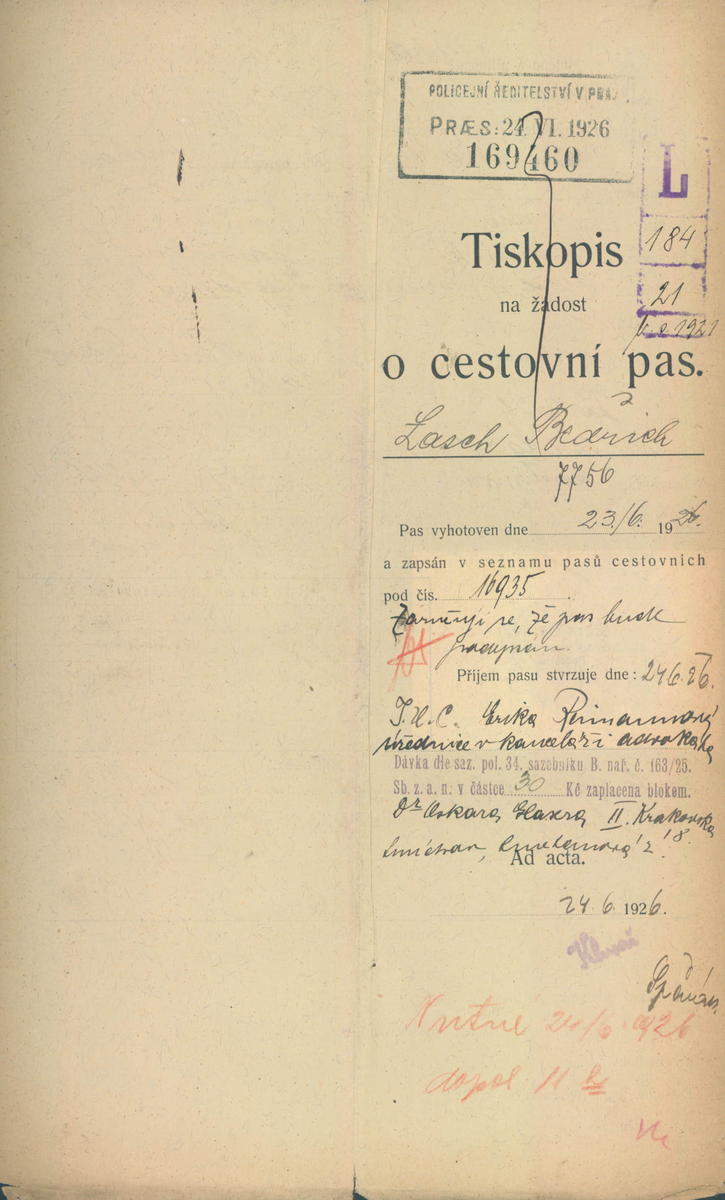 POLICEJNÍ ŘEDITELSTVÍ V PRA
PRÆS: 24. VI. 1926
169460
L
184
21
1921
Tiskopis
na žádost
o cestovní pas.
Lasch Bedřich
7756
Pas vyhotoven dne 23./6. 1926.
a zapsán v seznamu pasů cestovních
pod čís. 16935.
Zaručuji se, že pas bude
podepsán.
Příjem pasu stvrzuje dne: 24.6.26.
J.U.C. Erika
úřednice v kanceláři advokáta
Dávka dle saz. pol. 34. sazebníku B. nař. č. 163/25.
Sb. z. a. n. v částce 30 Kč zaplacena blokem.
Dr Oskara II. Krakovská
18.
Smíchov, Smetanova 2
Ad acta.
24. 6. 1926.
Nutné 24/6. 1926
dopol 11 h